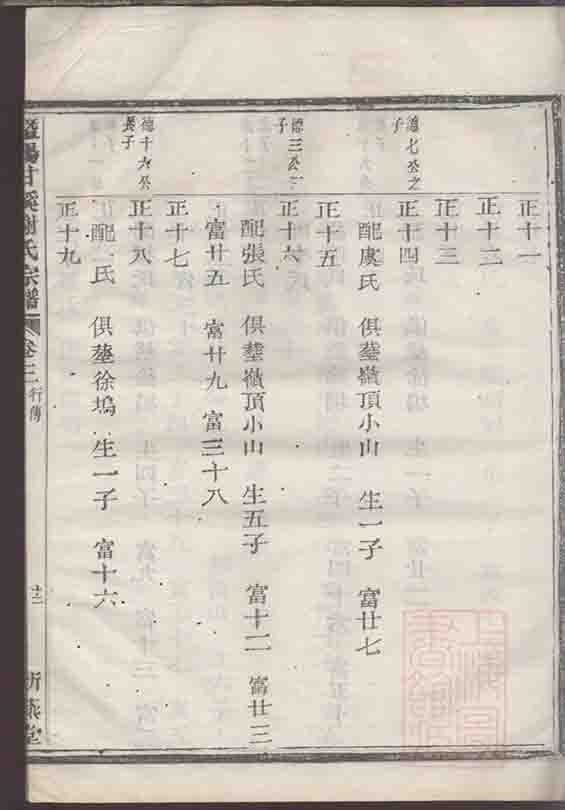 正十一
正十二
正十三
德七公之子
正十四
配虞氏 俱塟嶺頂小山 生一子 富廿七
正十五
德三公二子
正十六
配張氏 俱塟嶺頂小山 生五子 富十二 富廿三
富廿五 富廿九 富三十八
正十七
德十六公長子
正十八
配 氏 俱塟徐塢 生一子 富十六
正十九
暨陽甘溪謝氏宗譜 卷三 行傳 十二
上海圖書館藏